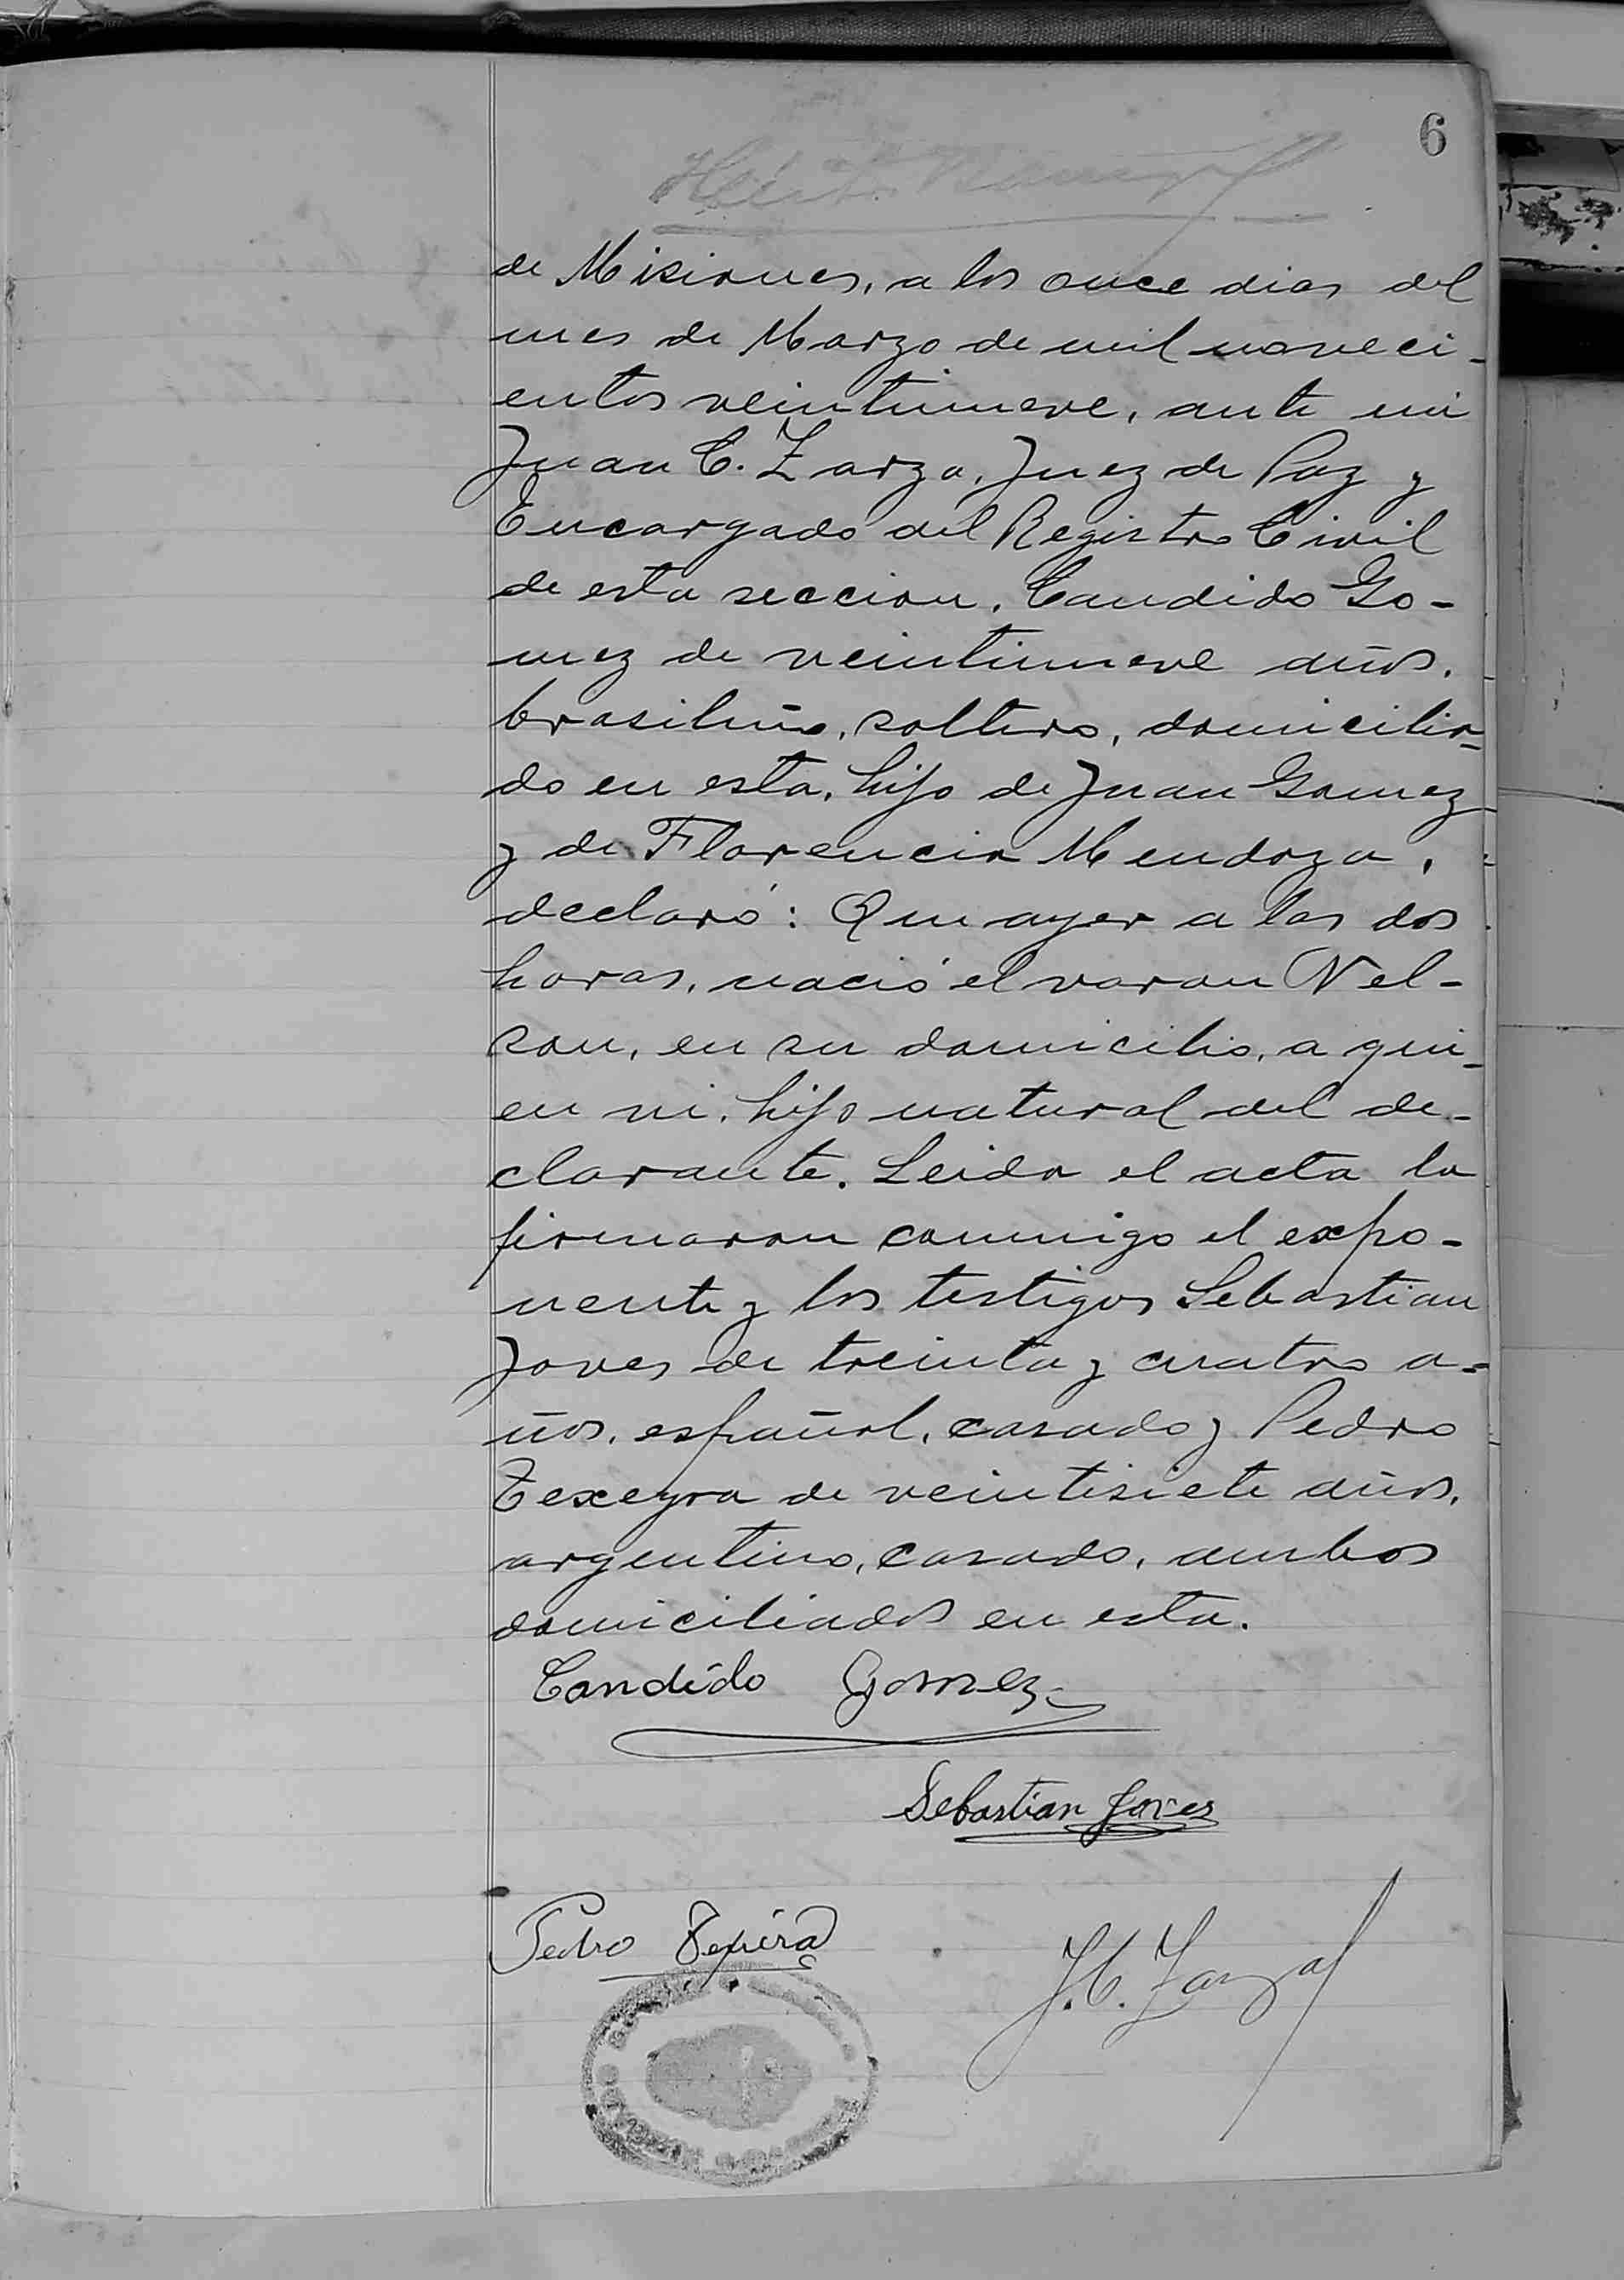 6
de Misiones, a los once dias del
mes de Marzo de mil noveci-
entos veintinueve, ante mi
Juan C. Zarza, Juez de Paz y
Encargado del Registro Civil
de esta seccion, Candido Go-
mez de veintinueve años,
brasileño, soltero, domicilia-
do en esta, hijo de Juan Gomez
y de Florencia Mendoza,
declaró: Que ayer a las dos
horas, nació el varon Nel-
son, en su domicilio, a qui-
en vi, hijo natural del de-
clarante. Leida el acta la
firmaron conmigo el expo-
nente y los testigos Sebastian
Joves de treinta y cuatro a-
ños, español, casado y Pedro
Texeyra de veintisiete años,
argentino, casado, ambos
domiciliados en esta.
Candido Gomez
Sebastian Joves
Pedro Texeira
J. C. Zarza